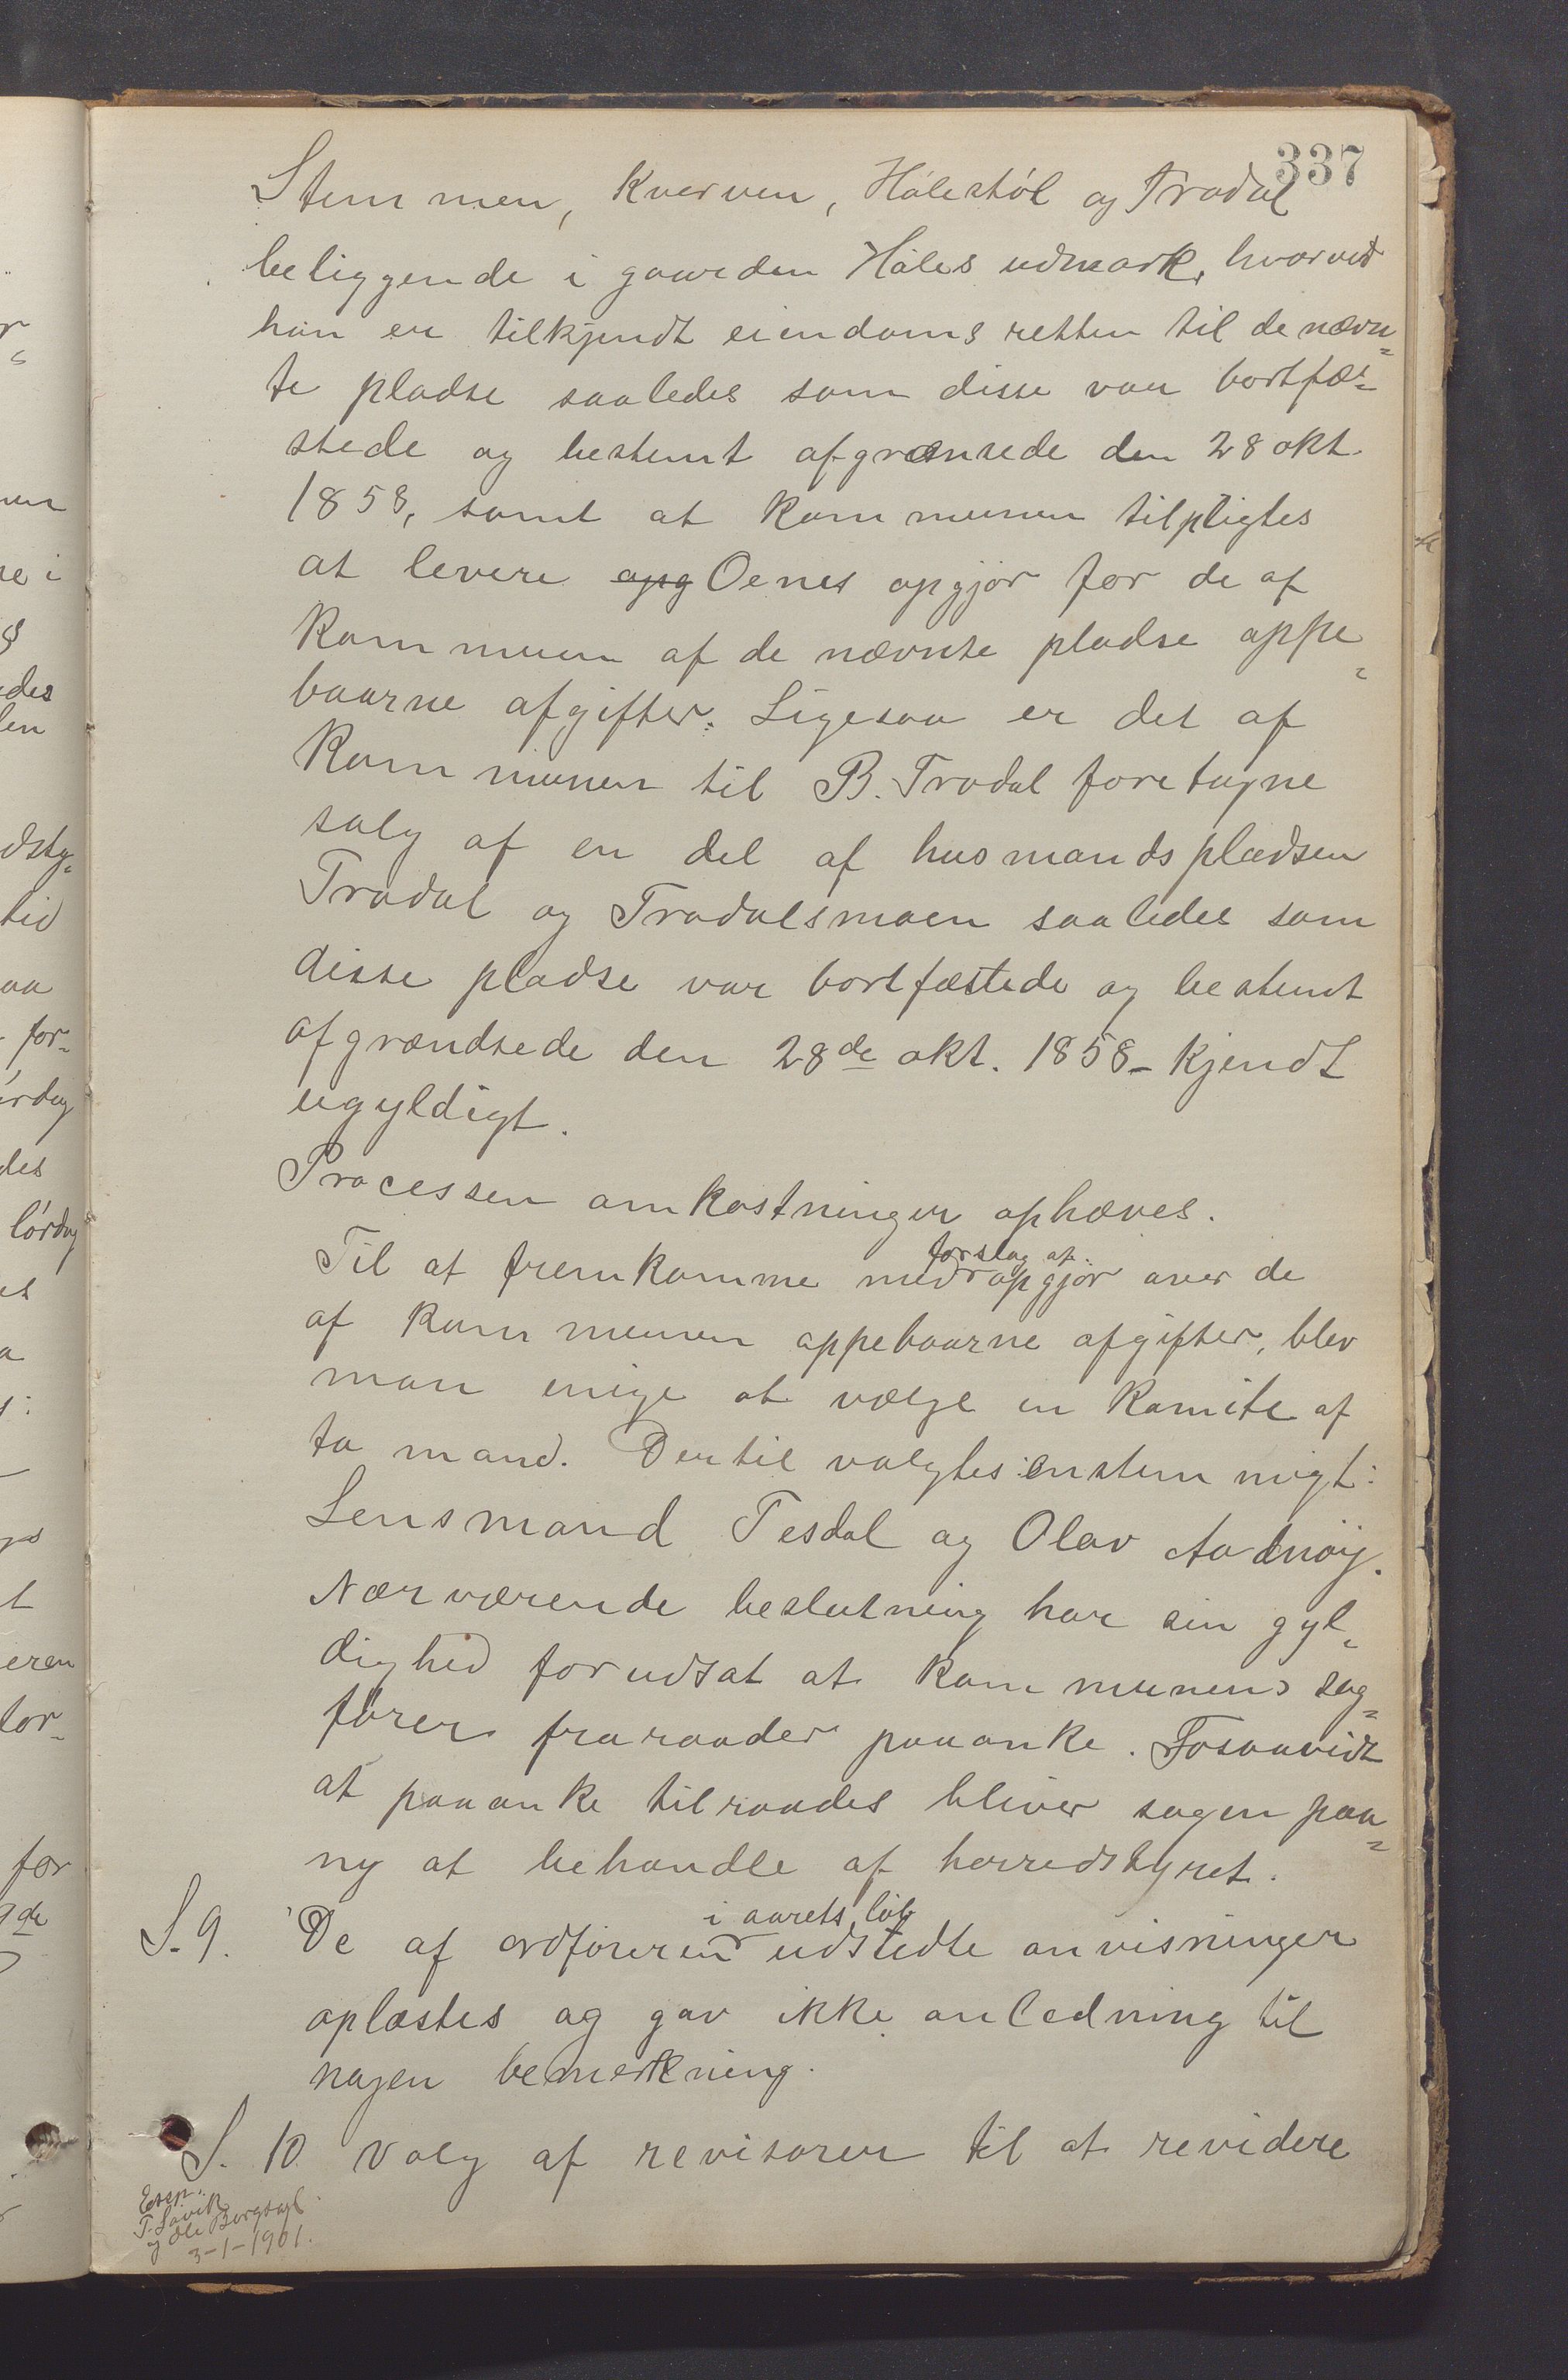 337
Stemmen, Kverven, Hålestøl og Tradal
beliggende i gaarden Håles udmark, hvorved
han er tilkjendt eiendomsretten til de nævn=
te pladse saaledes som disse var bortfæ=
stede og bestemt afgrænsede den 28 okt.
1858, samt at Kommunen tilpligtes
at levere opg Oenes opgjør for de af
Kommunen af de nævnte pladse oppe=
baarne afgifter. Ligesaa er det af
Kommunen til B. Tradal foretagne
salg af en del af husmandspladsen
Tradal og Tradalsmoen saaledes som
disse pladse var bortfæstede og bestemt
afgrændsede den 28de okt. 1858 – Kjendt
ugyldigt.
Processen omkostninger ophæves.
forslag af
Til at fremkomme med opgjør over de
af kommunen oppebaarne afgifter, blev
man enige at vælge en Komite af
to mand. Dertil valgtes enstemmigt:
Lensmand Tesdal og Olav Aadnøy.
Nærværende beslutning har sin gyl=
dighed forudsat at Kommunens sag=
fører fraraader paaanke. Fosaavidt
at paaanke tilraades bliver sagen paa=
ny at behandle af herredstyret.
i aarets løb
S. 9. De af ordføreren udstedte anvisninger
oplæstes og gav ikke anledning til
nogen bemerkning.
S. 10 Valg af revisorer til at revidere
Exsp.
T. Løvik
og Ole Borgsagl
3-1-1901.